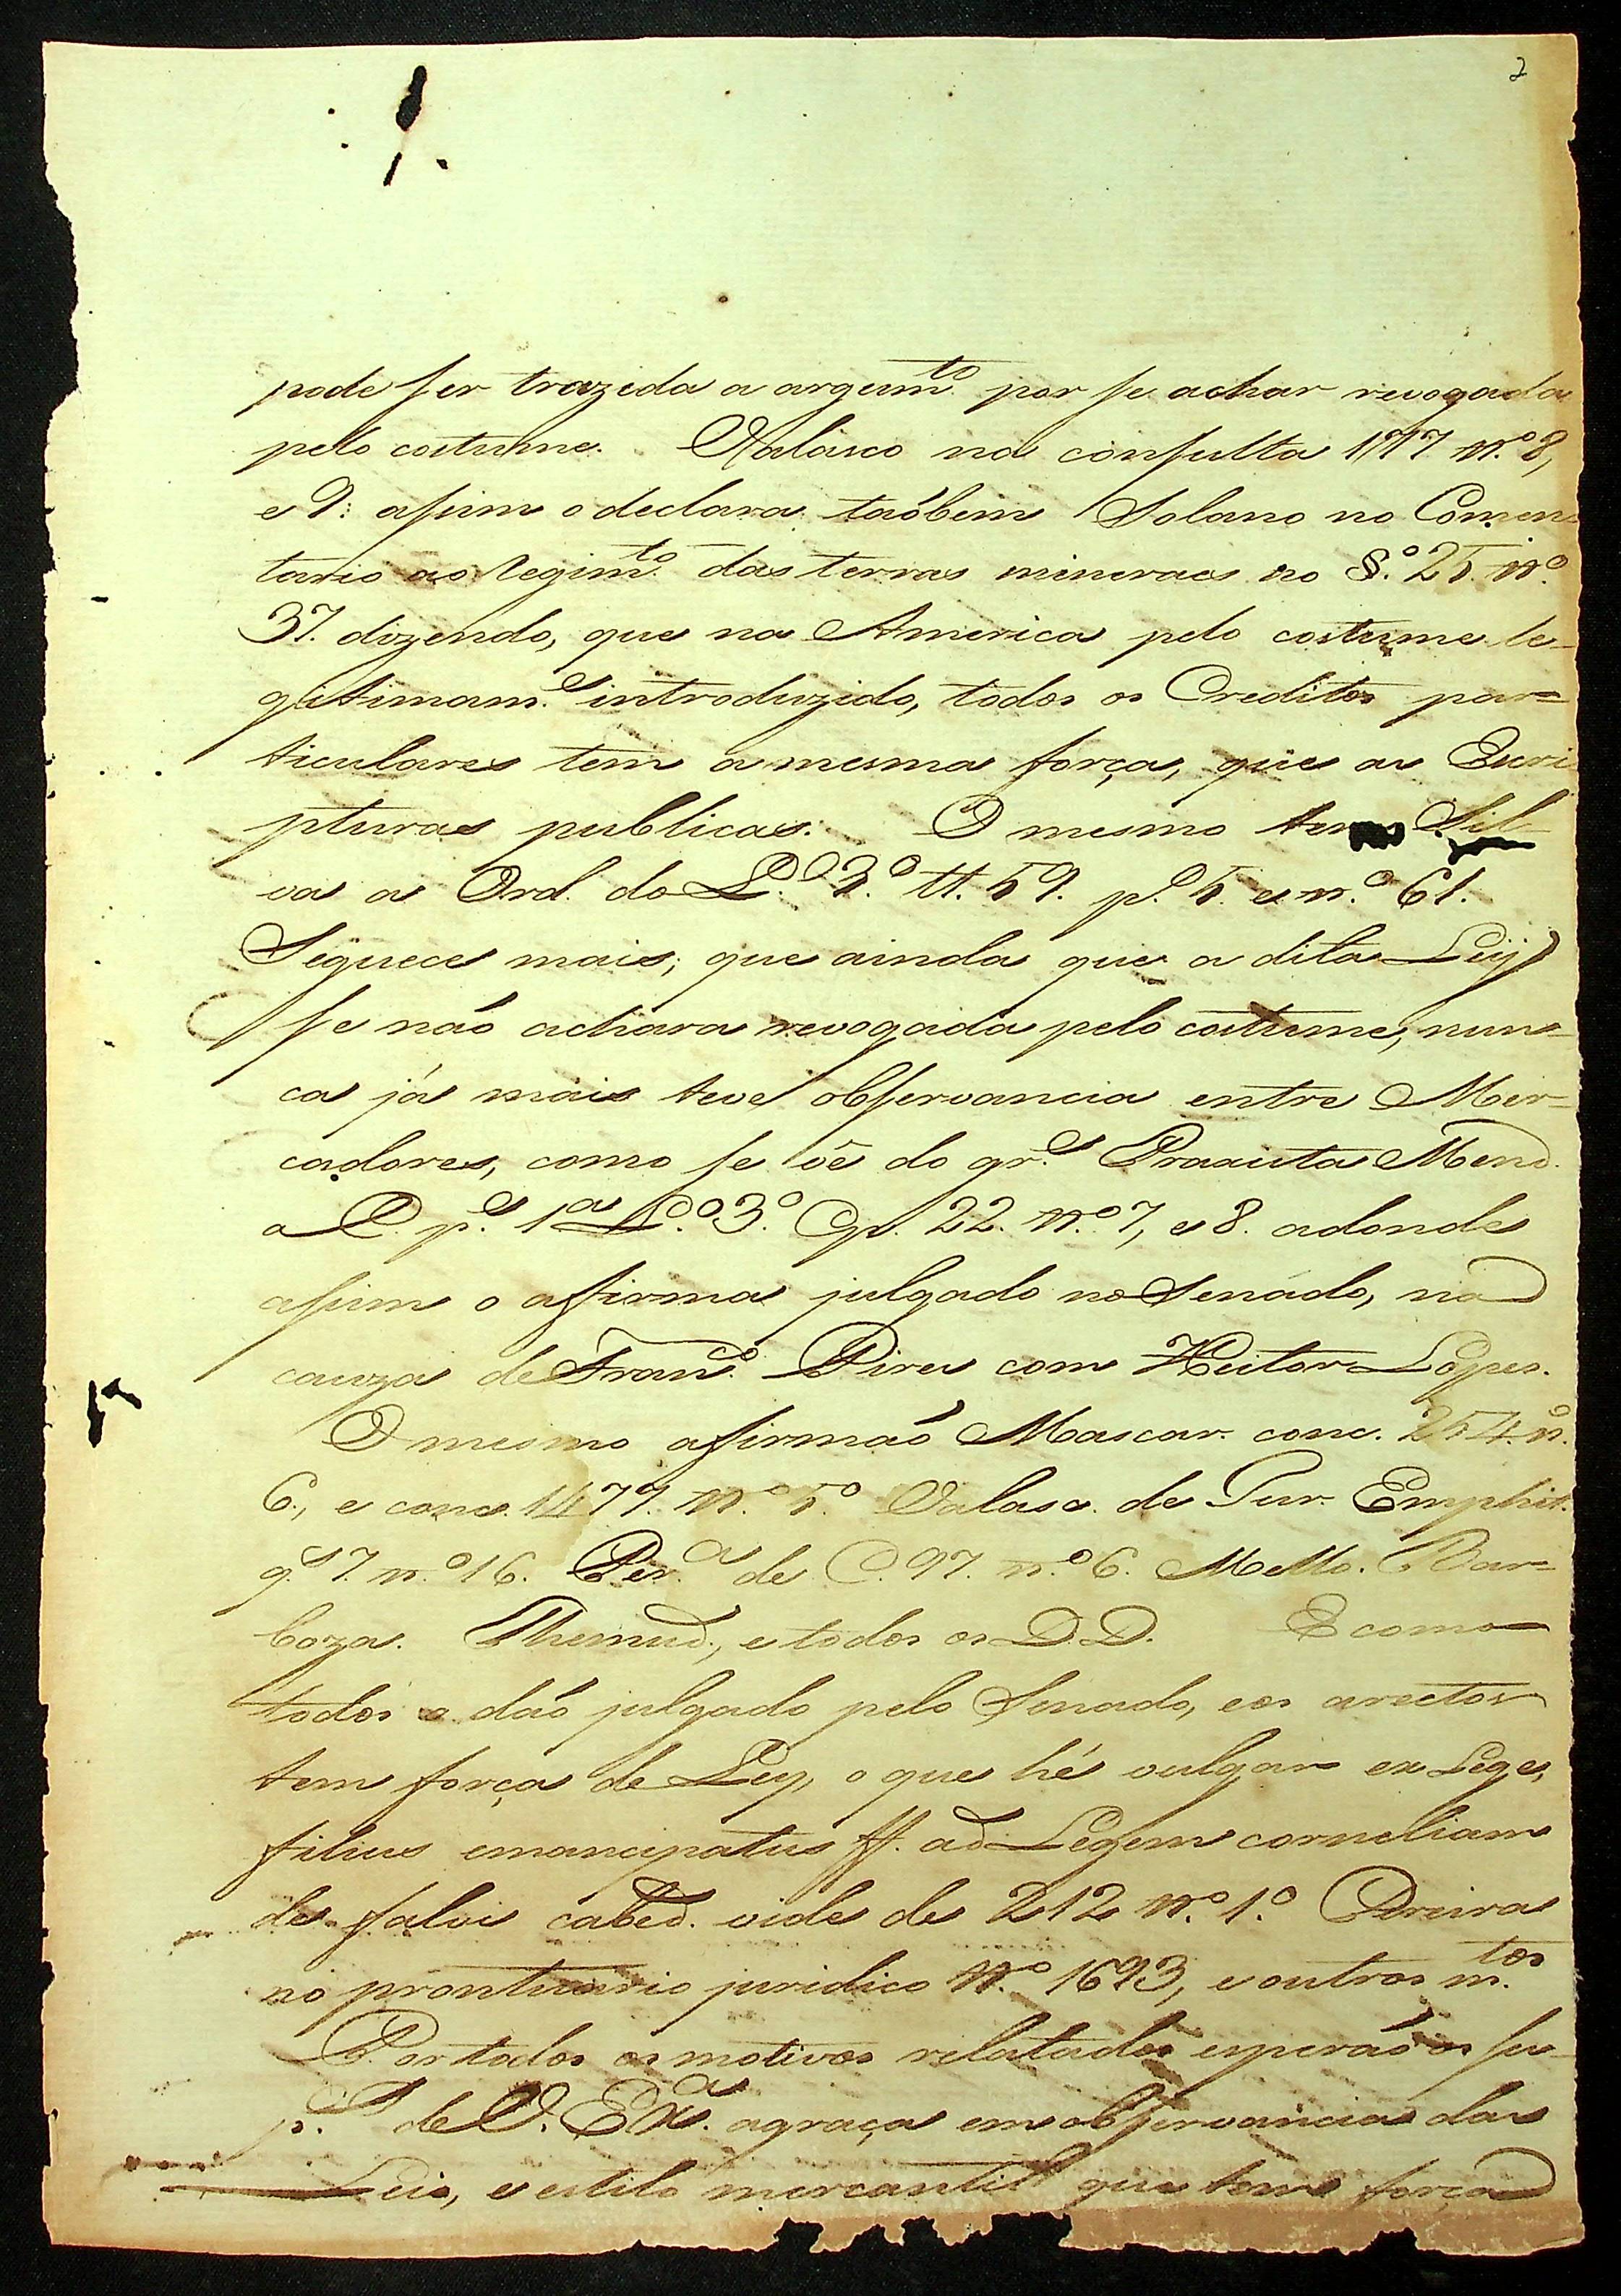 2
pode ser trazida a argum.to por se achar revogada
pelo costume. Valasco na consulta 177 n.º 8,
e 9: asim o declara taóbem Solano no Comen
tario ao Regim.to das terras mineraes no §.º 25. n.º
37. dizendo, que na America pelo costume le-
gitimam.e introduzido, todos os Creditos par=
ticulares tem a mesma força, que as Escri
pturas publicas. O mesmo tem Sil-
va a Ord. do L.º 3.º tt. 59. p.º 5. e n.º 61.
Seguece mais; que ainda que a dita Ley
se naó achara revogada pelo costume, nun=
ca já mais teve observancia entre Mer=
cadores, como se vê do gr.e Praxista Mend.
a C. p.e 1.a L.º 3.º Cp. 22. n.º 7, e 8. adonde
asim o afirma julgado no Senado, na
cauza de Fran.co Pires com Heitor Lopes.
O mesmo afirmaó Mascar. conc. 254. n.º
6., e conc. 1477. n.º 5.º Valasc. de Jur. Emphit.
q.e 7. n.º 16. Per.a de C. 97. n.º 6. Mello. Bar=
boza. Themud., e todos os D.D. E como
todos o daó julgado pelo Senado, e os arestos
tem força de Ley, o que hé vulgar ex Lege,
filius emancipatus ff. ad Legem corneliam
de falsis cabed. vide de 212 n.º 1.º Pereira
no prontuario juridico n.º 1693, e outros m.tos
Por todos os motivos relatados esperaó os su-
p.es de V. Ex.a a graça em observancia das
Leis, e estilo mercantil que tem força